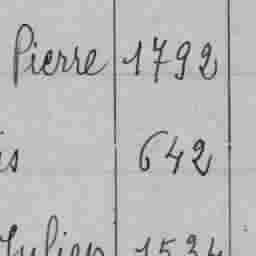 Pierre 1792
is 642
Julien 1534